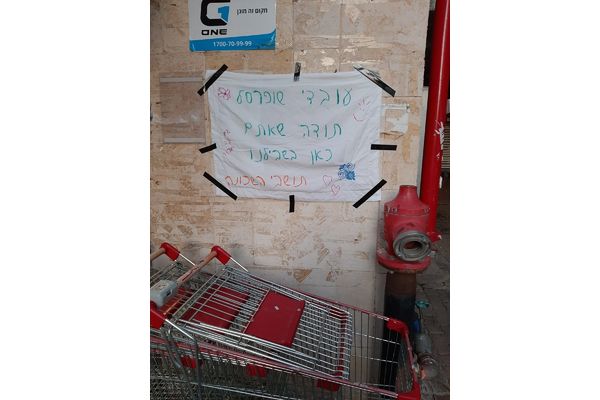 מקום זה מוגן
G1
ONE
1700-70-99-99
עובדי שופרסל
תודה שאתם
כאן בשבילנו
תושבי השכונה